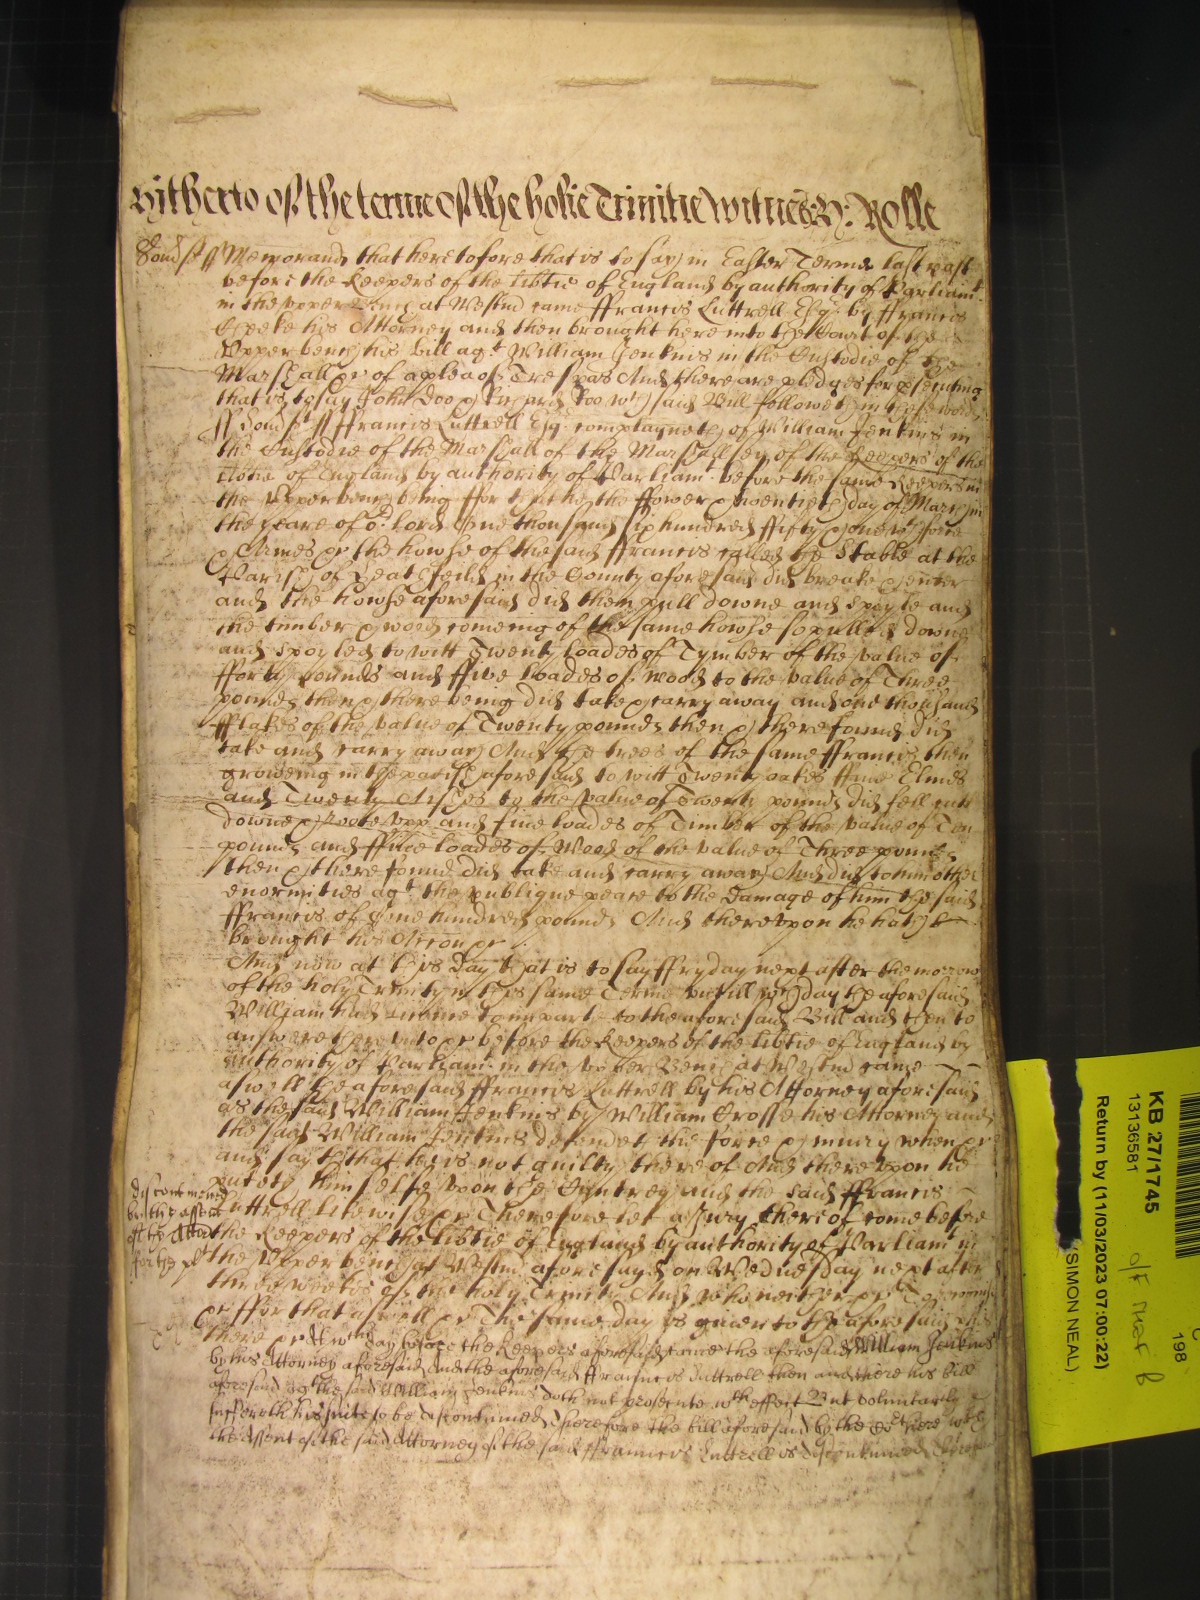 hitherto of the terme of the holie Trinitie witnes H: Rolle
Memorand that heretofore that is to say in Easter Terme last past
before the Keepers of the libtie of England by authority of Parliamt
in the upper Bench at Westmr came ffrancis Luttrell Esqr by ffrancis
his Attorney and then brought here into the Court of the
Upper bench his bill agt William Jenkins in the Custodie of the
Marshall &c of a plea of Trespas And there are pledges for psecuting
that is to say John Doo & Richard Roo wch said Bill followeth in these words
ss ffrancis Luttrell Esqr complayneth of William Jenkins in
the Custodie of the Marshall of the Marshallsey of the Keepers of the
libtie of England by authority of Parliamt before the same Keepers in
the Upper bench being ffor that he the ffower & twentieth day of March in
the yeare of or lord One thousand six hundred ffifty & one wth force
& Armes &c the howse of the said ffrancis called the Stable at the
Parish of in the County aforesaid did breake & enter
and the howse aforesaid did then pull downe and spoyle and
the timber & wood comeing of the same howse so pulled downe
and spoyled to witt Twenty loades of Tymber of the value of
fforty pounds and ffive loades of wood to the value of Three
pounds then & there being did take & carry away and one thousand
of the value of Twenty pounds then & there found did
take and carry away And the trees of the same ffrancis then
groweing in the parish aforesaid to witt Twenty oakes Elmes
and Twenty Ashes to the value of Twenty pounds did fell cutt
downe & roote upp and five loades of Timber of the value of Ten
pounds and ffive loades of Wood of the value of Three pounds
then & there found did take and carry away And did to him other
enormities agt the publique peace to the Damage of him the said
ffrancis of One hundred pounds And thereupon he hath
brought his Accon &c
And now at this day that is to say ffryday next after the morrow
of the holy Trinity in this same Terme untill wch day the aforesaid
William had licence to imparle to the aforesaid Bill and then to
answere thereunto &c before the Keepers of the libtie of England by
authority of Parliamt in the upper Bench at Westmr came
aswell the aforesaid ffrancis Luttrell by his Attorney aforesaid
as the said William Jenkins by William Crosse his Attorney and
the said William Jenkins defendeth the force & iniury when &c
and sayth that he is not guilty thereof And thereupon he
putteth himselfe upon the Cuntrey and the said ffrancis
Luttrell likewise &c Therefore let a Jury thereof come before
the Keepers of the libtie of England by authority of Parliamt in
the Upper bench at Westmr aforesayd on Wednesday next after
three weekes of the holy Trinity And who neither &c To
&c ffor that aswell &c The same day is given to the aforesaid
there &c At wch day before the Keepers aforesaid came the aforesaid William Jenkins
by his Attorney aforesaid And the aforesaid ffrancis Luttrell then and there his bill
aforesaid agt the said William Jenkins doth not prosecute wth effect But voluntarily
suffereth his suite to be discontinued Therefore the bill aforesaid by the Cort here wth
the assent of the said Attorney of the said ffrancis Luttrell is discontinued
discontinued
by the assent
of the Attor
for the plt
KB 27/1745
13136581
Return by (11/03/2023 07:00:22)
(SIMON NEAL)
198